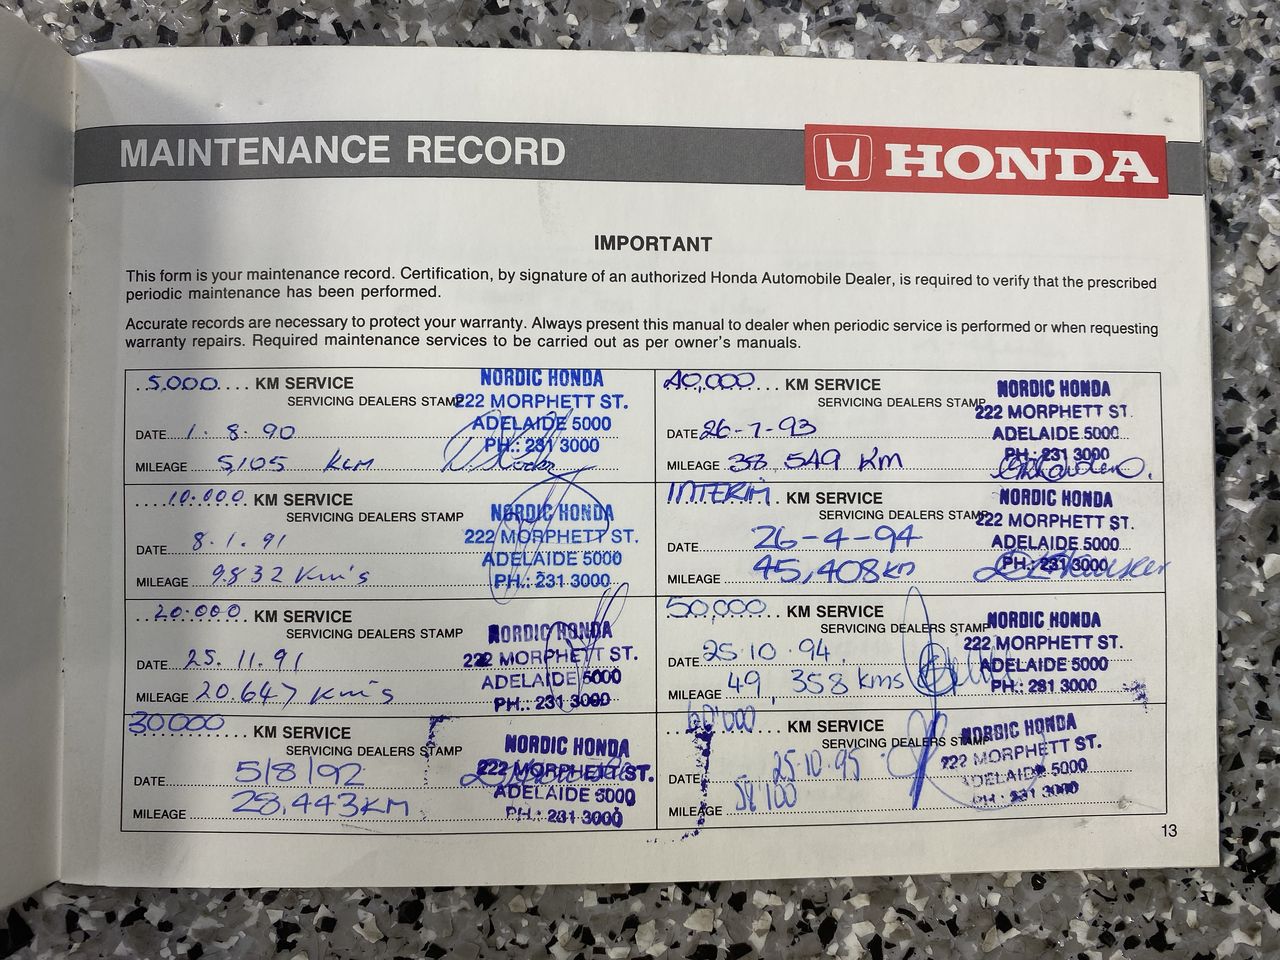 MAINTENANCE RECORD
HONDA
IMPORTANT
This form is your maintenance record. Certification, by signature of an authorized Honda Automobile Dealer, is required to verify that the prescribed
periodic maintenance has been performed.
Accurate records are necessary to protect your warranty. Always present this manual to dealer when periodic service is performed or when requesting
warranty repairs. Required maintenance services to be carried out as per owner's manuals.
5,000 KM SERVICE
SERVICING DEALERS STAMP
NORDIC HONDA
222 MORPHETT ST.
ADELAIDE 5000
PH.: 231 3000
DATE 1.8.90
MILEAGE 5,105 KLM
10.000 KM SERVICE
SERVICING DEALERS STAMP
NORDIC HONDA
222 MORPHETT ST.
ADELAIDE 5000
PH.: 231 3000
DATE 8.1.91
MILEAGE 9.832 Km's
20.000 KM SERVICE
SERVICING DEALERS STAMP
NORDIC HONDA
222 MORPHETT ST.
ADELAIDE 5000
PH.: 231 3000
DATE 25.11.91
MILEAGE 20.647 Km's
30.000 KM SERVICE
SERVICING DEALERS STAMP
NORDIC HONDA
222 MORPHETT ST.
ADELAIDE 5000
PH.: 231 3000
DATE 5/8/92
MILEAGE 28,443KM
40,000 KM SERVICE
SERVICING DEALERS STAMP
NORDIC HONDA
222 MORPHETT ST.
ADELAIDE 5000
PH.: 231 3000
DATE 26-7-93
MILEAGE 38 549 KM
INTERIM KM SERVICE
SERVICING DEALERS STAMP
NORDIC HONDA
222 MORPHETT ST.
ADELAIDE 5000
PH.: 231 3000
DATE 26-4-94
MILEAGE 45,408KM
50,000 KM SERVICE
SERVICING DEALERS STAMP
NORDIC HONDA
222 MORPHETT ST.
ADELAIDE 5000
PH.: 231 3000
DATE 25.10.94
MILEAGE 49,358 kms
60'000 KM SERVICE
SERVICING DEALERS STAMP
NORDIC HONDA
222 MORPHETT ST.
ADELAIDE 5000
PH.: 231 3000
DATE 25.10.95
MILEAGE 58'100
13